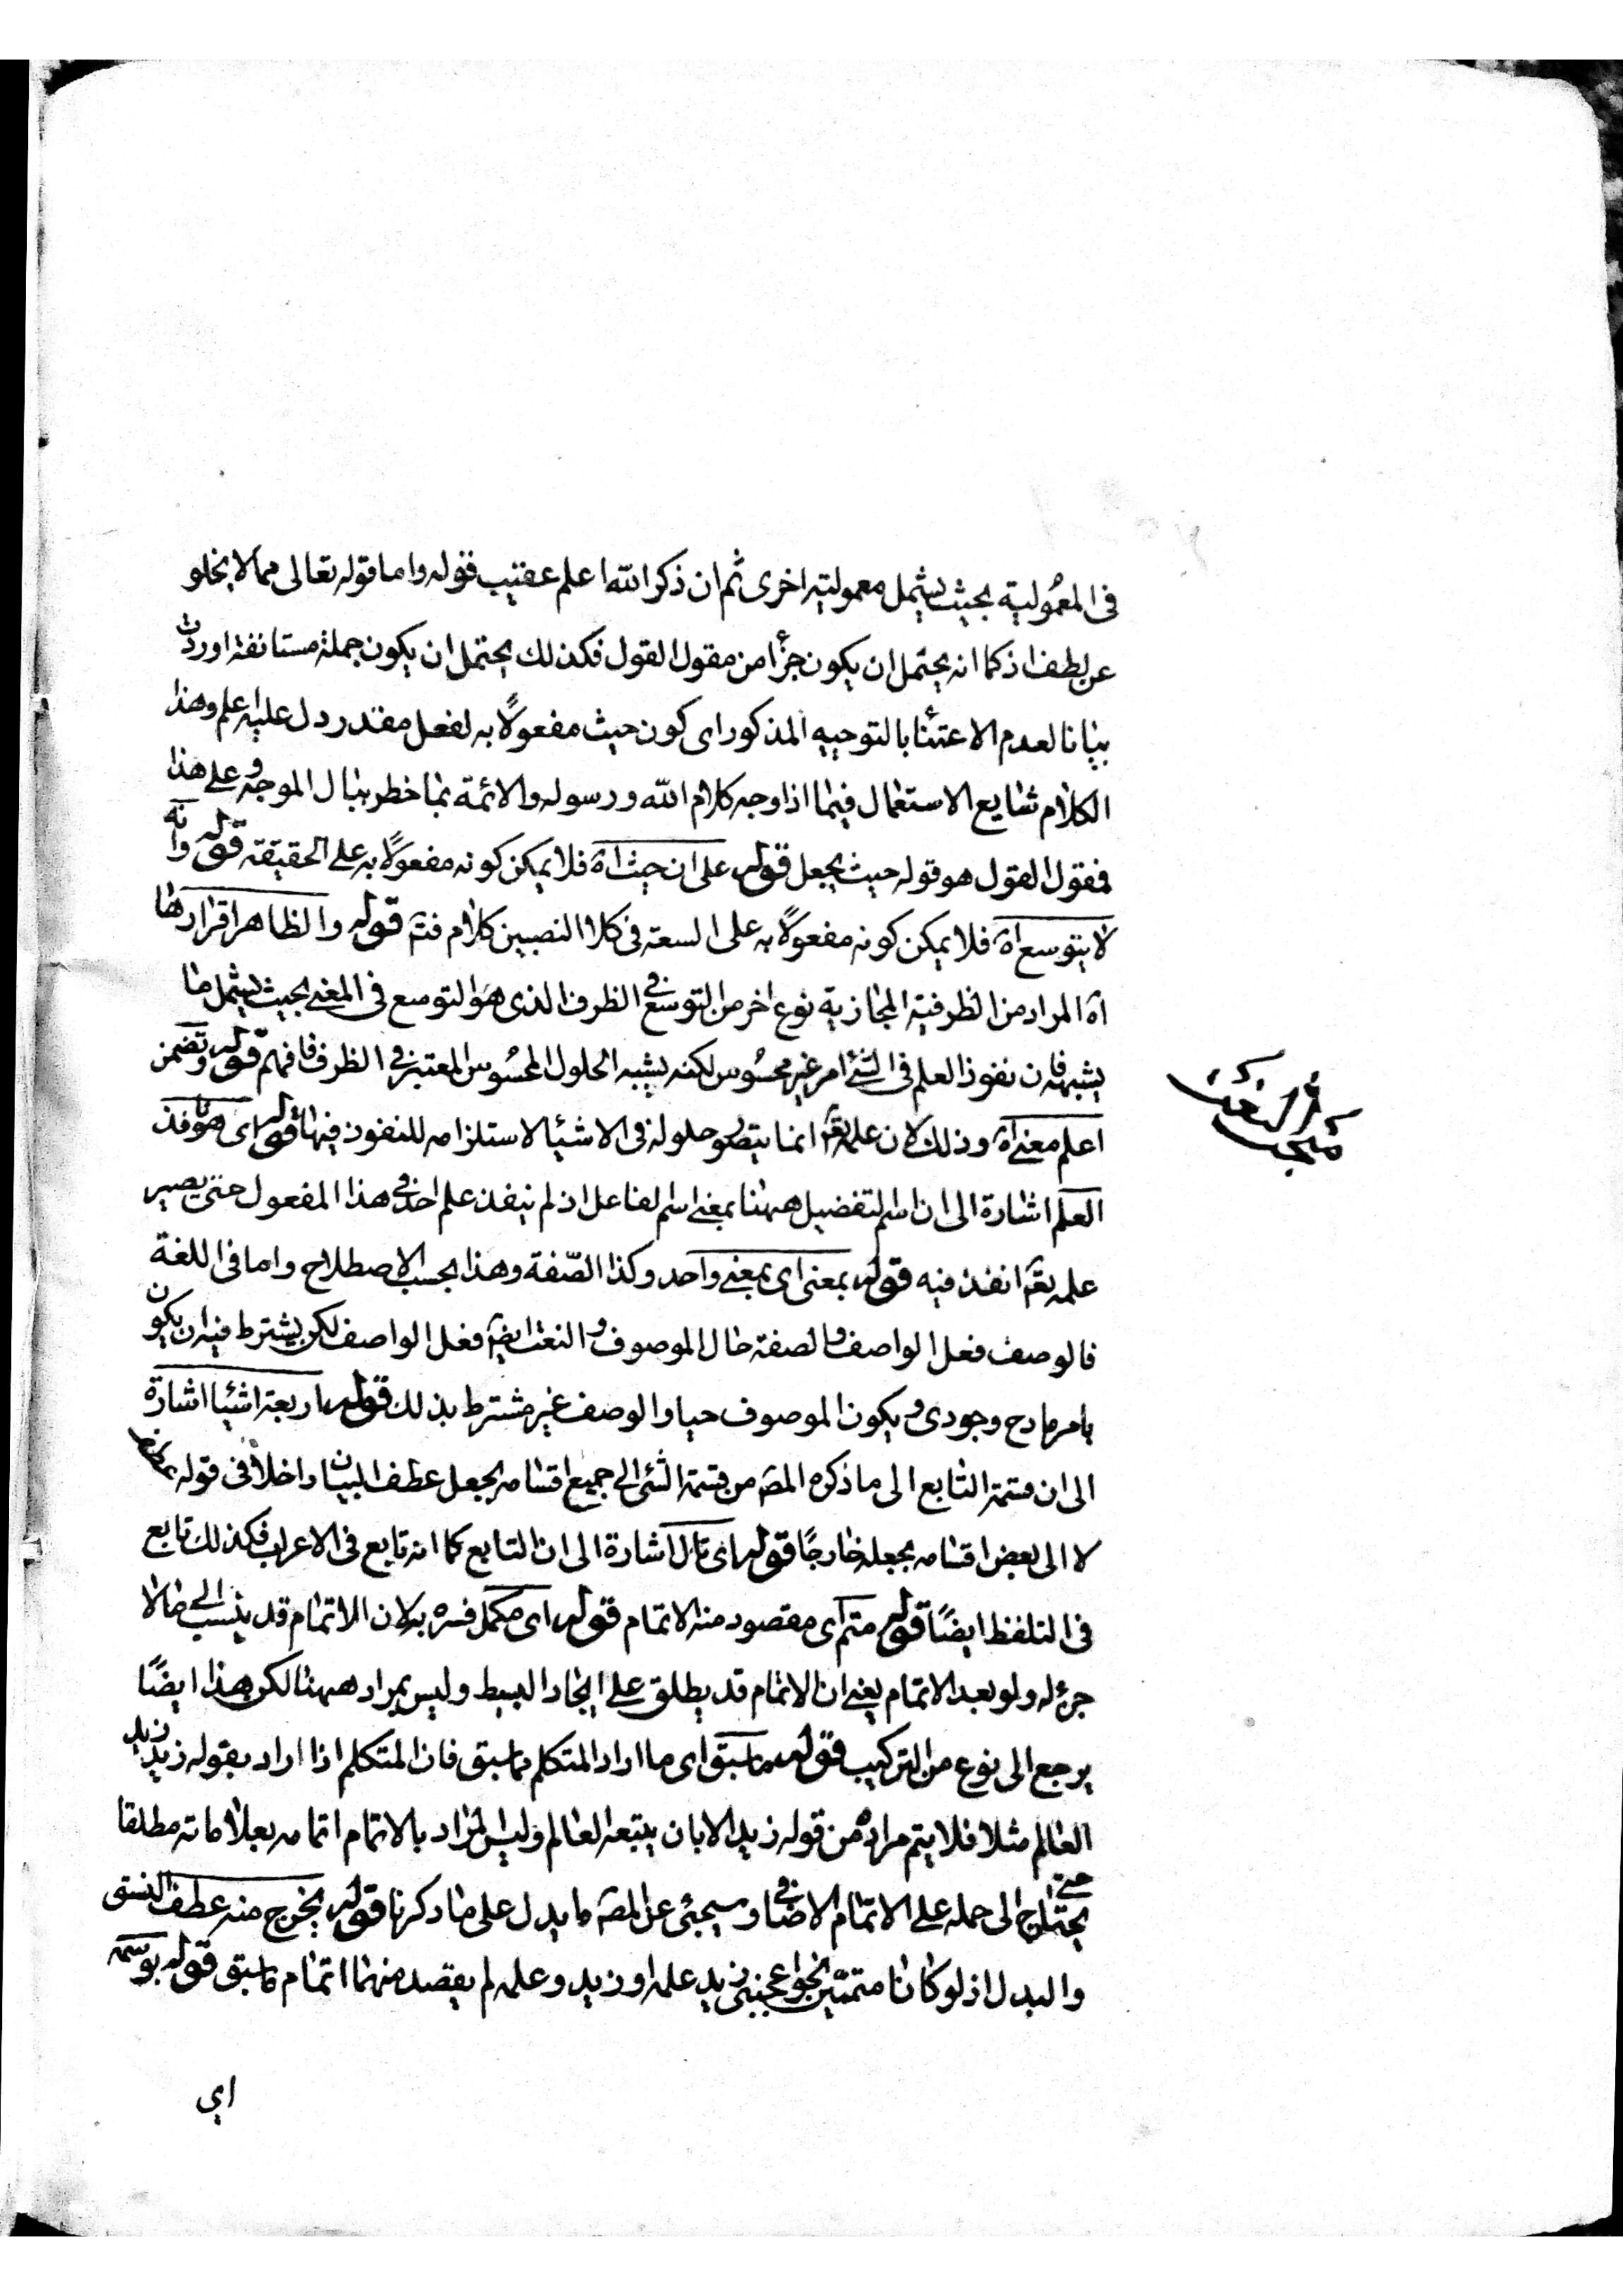 فى المعمولية بحيث يشمل معمولية اخرى ثم ان ذكر الله اعلم عقيب قوله واما قوله تعالى مما لا يخلو
عن لطف اذ كما انه يحتمل ان يكون جزأ من مقول القول فكذلك يحتمل ان يكون جملة مستانفة اوردت
بيانا لعدم الاعتنأ بالتوجيه المذكور اى كون حيث مفعولاً به لفعل مقدر دل عليه اعلم وهذا
الكلام شايع الاستعمال فيما اذا وجه كلام الله ورسوله والائمة بما خطر ببال الموجه وعلى هذا
فمقول القول هو قوله حيث يجعل قوله على ان حيث اه فلا يمكن كونه مفعولاً به على الحقيقة قوله وانه
لا يتوسع اه فلا يمكن كونه مفعولاً به على السعة فى كلا النصبين كلام فتم قوله والظاهر اقرارها
اه المراد من الظرفية المجازية نوع اخر من التوسع فى الظرف الذى هو التوسع فى المعنى بحيث يشمل ما
يشبهه فان نفوذ العلم فى الشئ امر غير محسوس لكنه يشبه الحلول المحسوس المعتبر فى الظرف فافهم قوله وتضمن
اعلم معنى اه وذلك لان علمه تعه انما يتصور حلوله فى الاشيا لاستلزامه للنفوذ فيها قوله اى هو نافذ
العلم اشارة الى ان اسم التفضيل ههنا بمعنى اسم الفاعل اذ لم ينفذ علم احد فى هذا المفعول حتى يصير
علمه تعه انفذ فيه قوله بمعنى اى بمعنى واحد وكذا الصّفة وهذا بحسب الاصطلاح واما فى اللغة
فالوصف فعل الواصف والصفة حال الموصوف والنعت ايضه فعل الواصف لكن يشترط فيه ان يكون
بامر مادح وجودى ويكون الموصوف حيا والوصف غير مشترط بذلك قوله اربعة اشيا اشارة
الى ان قسمة التابع الى ما ذكره المصه من قسمة الشئ الى جميع اقسامه بجعل عطف البيان داخلاً فى قوله
لا الى بعض اقسامه بجعله خارجًا قوله اى تال اشارة الى ان التابع كما انه تابع فى الاعراب فكذلك تابع
فى التلفظ ايضًا قوله متم اى مقصود منه الاتمام قوله اى مكمل فسره به لان الاتمام قد ينسب الى ما لا
جزء له ولو بعد الاتمام يعنى ان الاتمام قد يطلق على ايجاد البسيط وليس بمراد ههنا لكن هذا ايضًا
يرجع الى نوع من التركيب قوله ما سبق اى ما اراد المتكلم بما سبق فان المتكلم اذا اراد بقوله زيد زيد
العالم مثلا فلا يتم مراده من قوله زيد الا بان يتبعه العالم وليس المراد بالاتمام اتمامه بعلاماته مطلقا
حتى يحتاج الى حمله على الاتمام الاضافى وسيجئى عن المصه ما يدل على ما ذكرنا قوله يخرج منه عطف النسق
والبدل اذ لو كانا متممين نحو اعجبنى زيد علمه او زيد وعلمه لم يقصد منهما اتمام ما سبق قوله بوسمه
اى
مبحث النعت